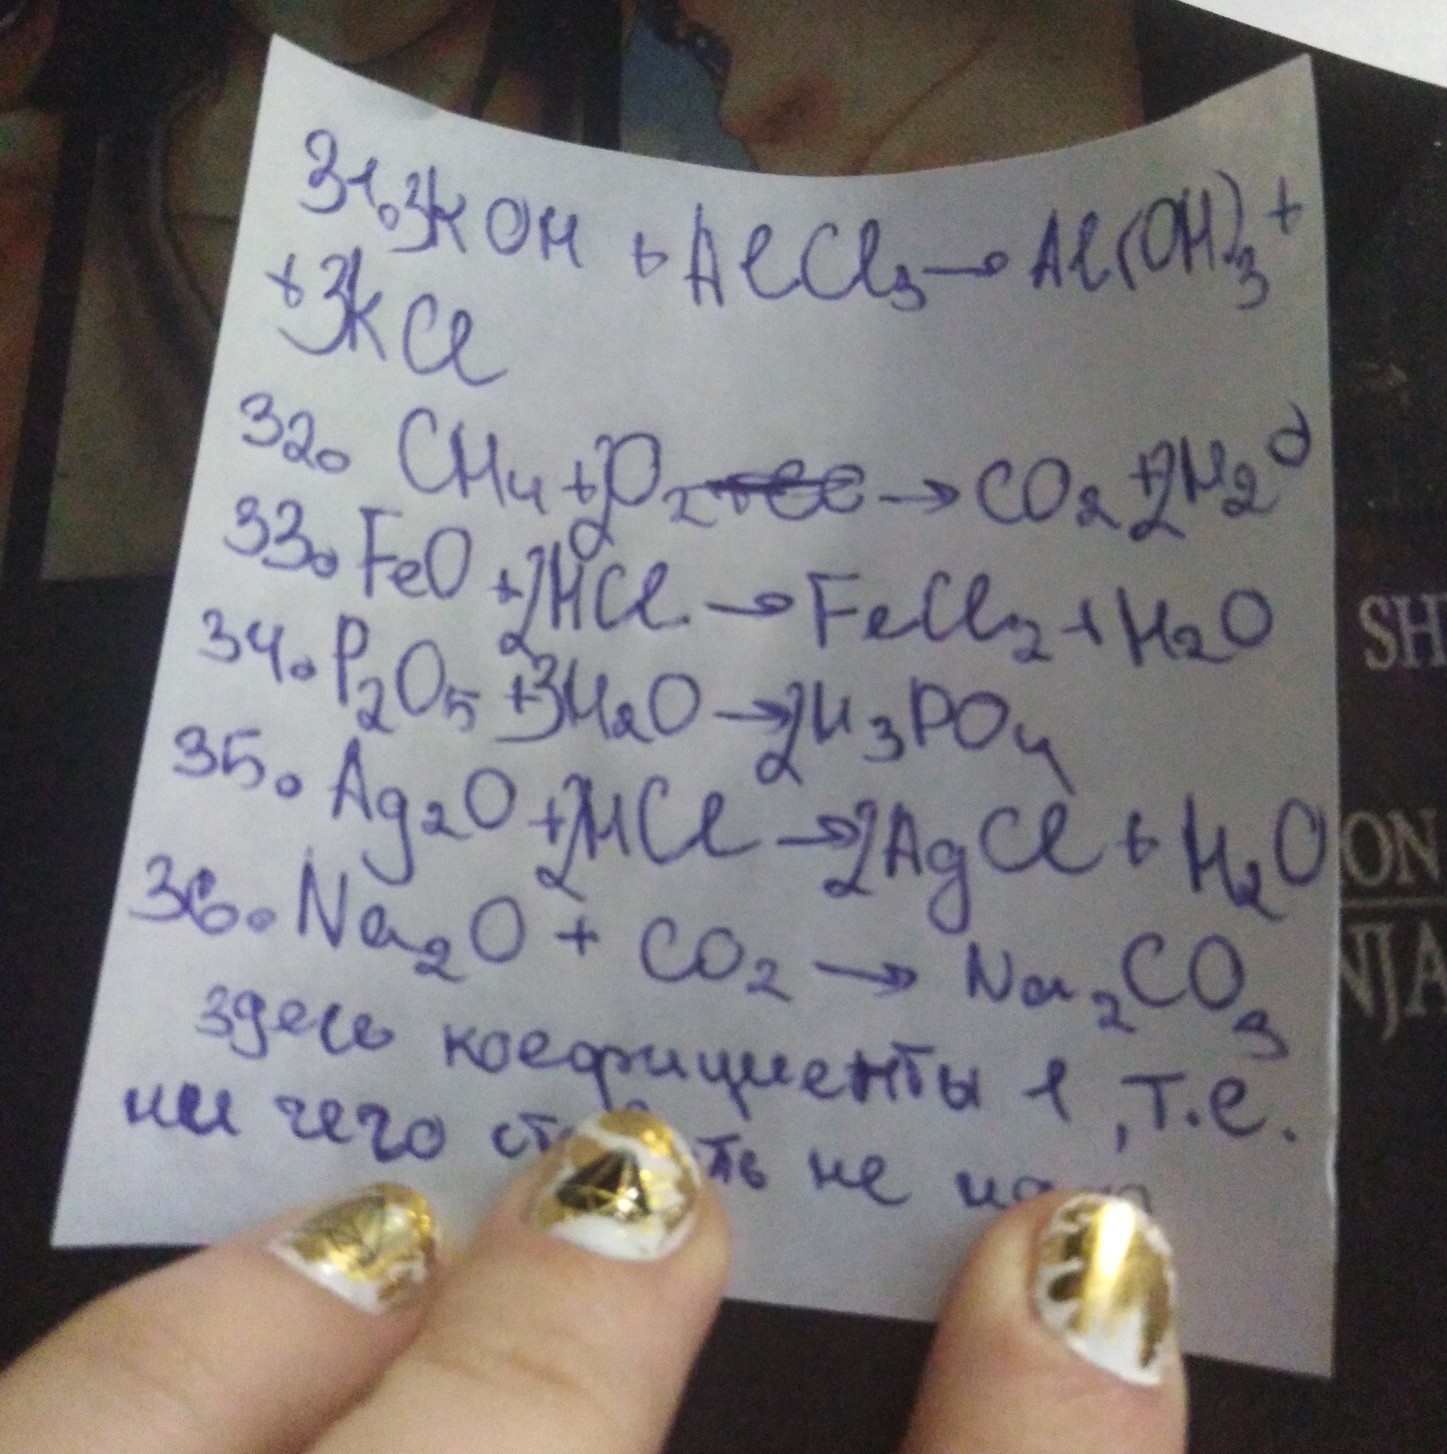 31. 3KOH + AlCl₃ → Al(OH)₃ +
+ 3KCl
32. CH₄ + 2O₂ → CO₂ + 2H₂O
33. FeO + 2HCl → FeCl₂ + H₂O
34. P₂O₅ + 3H₂O → 2H₃PO₄
35. Ag₂O + 2HCl → 2AgCl + H₂O
36. Na₂O + CO₂ → Na₂CO₃
здесь коефициенты 1, т.е.
ни чего не
SH
ON
NJA